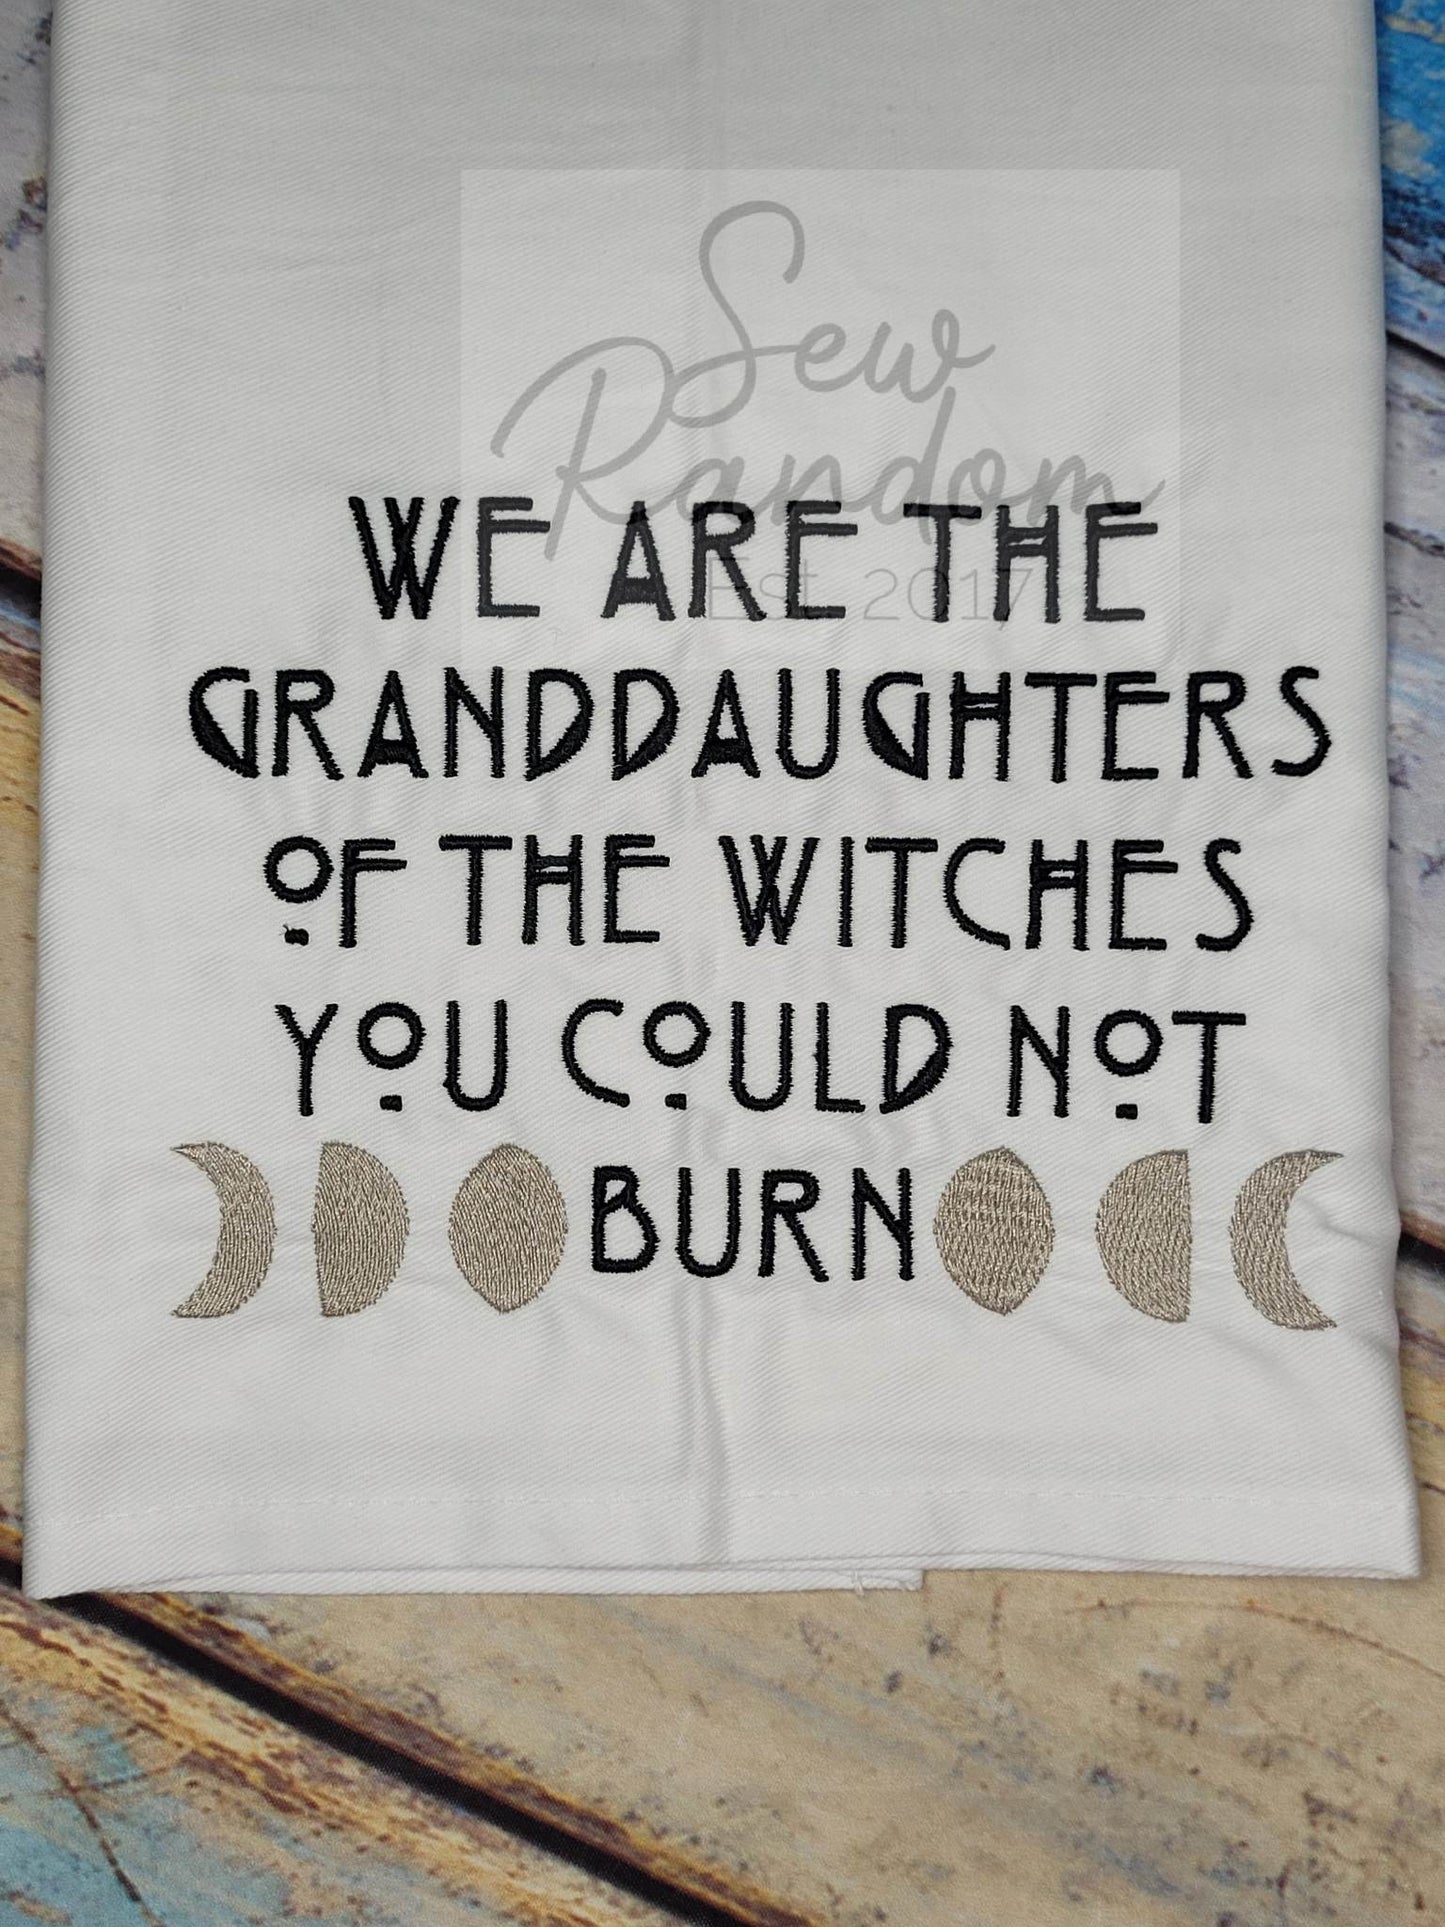 Sew
Random
Est. 2017
WE ARE THE
GRANDDAUGHTERS
OF THE WITCHES
YOU COULD NOT
BURN